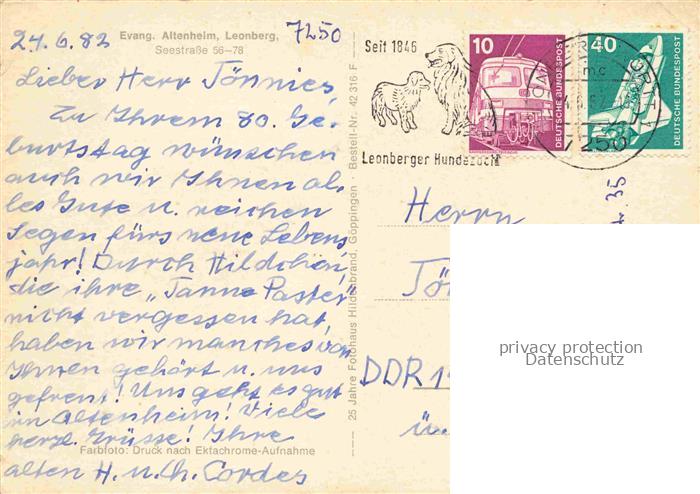 24.6.82
Evang. Altenheim, Leonberg,
7250
Seestraße 56-78
Lieber Herr Tönnies,
Zu Ihrem 80. Ge-
burtstag wünschen
auch wir Ihnen al-
les Gute u. reichen
Segen fürs neue Lebens
jahr! Durch Hildchen,
die ihre „Tanne Paster"
nicht vergessen hat,
haben wir manches von
Ihnen gehört u. uns
gefreut! Uns geht es gut
im Altenheim! Viele
herzl. Grüsse! Ihre
Farbfoto: Druck nach Ektachrome-Aufnahme
alten H. u. Ch. Cordes
25 Jahre Fotohaus Hildenbrand, Göppingen · Bestell-Nr. 42 316 F
Seit 1846
Leonberger Hundezucht
10
DEUTSCHE BUNDESPOST
40
DEUTSCHE BUNDESPOST
mc
7250
35
Herrn
Tön
DDR 1
ü.
privacy protection
Datenschutz